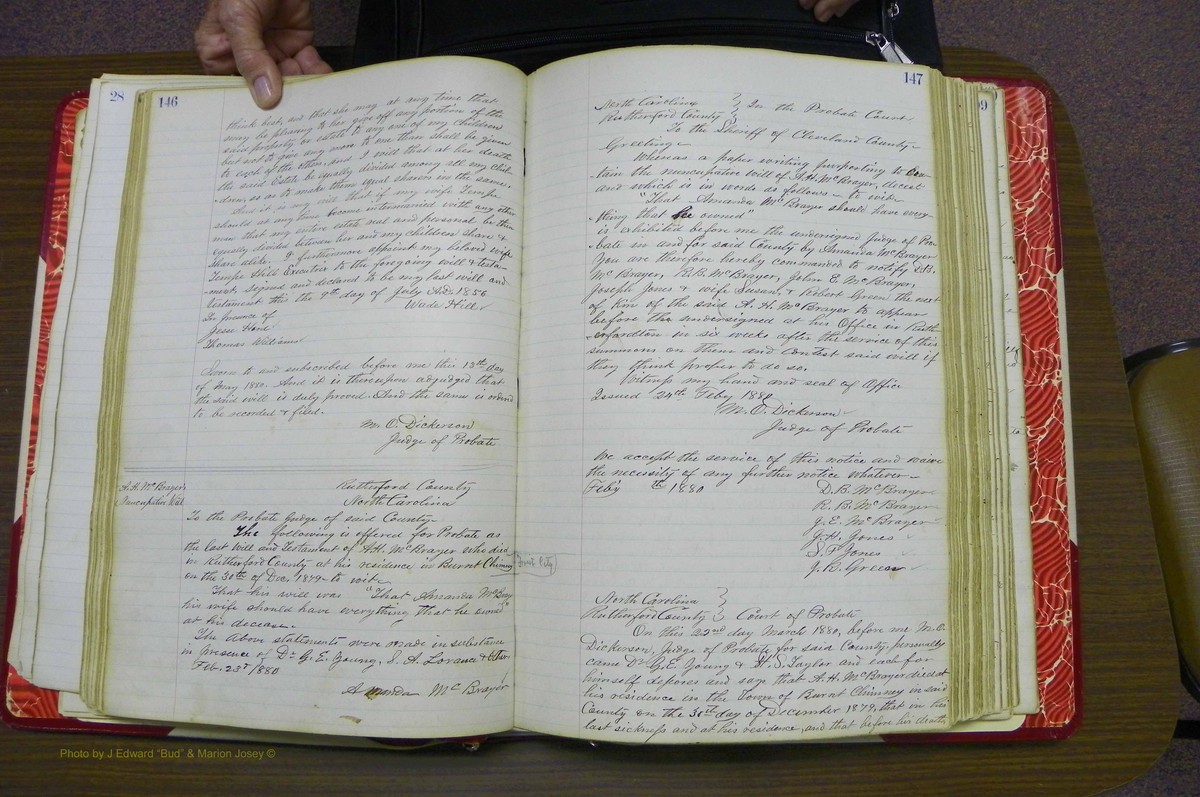 28
146
think best, and that she may at any time that
may be pleasing to her give off any portion of the
said property or estate to any one of my children
but not to give any more to one than shall be given
to each of the other, and I will that at her death
the said Estate be equally divided among all my chil-
dren, so as to make them equal sharers in the same.
And it is my will that if my wife Tempe
should at any time become intermarried with any other
man that my entire estate real and personal be then
equally divided between her and my children share &
share alike. I furthermore appoint my beloved wife
Tempe Hill Executor to the foregoing will & testa-
ment signed and declared to be my last will and
testament this the 9th day of July A.D. 1856
In presence of Wade Hill
Jesse
Thomas Williams
Sworn to and subscribed before me this 13th day
of May 1880. And it is thereupon adjudged that
the said will is duly proved. And the same is ordered
to be recorded & filed.
M. O. Dickerson
Judge of Probate
A. H. McBrayer,
Nuncupative Will
Rutherford County
North Carolina
To the Probate Judge of said County
The following is offered for Probate as
the last Will and Testament of A. H. McBrayer who died
in Rutherford County at his residence in Burnt Chimney
Forest City
on the 30th of Dec. 1879 to wit
That his will was "That Amanda McBrayer
his wife should have everything that he owned"
at his decease.
The above statements were made in substance
in presence of Dr G. E. Young, S. A. Lorance &
Feb. 23rd 1880
Amanda McBrayer
147
99
North Carolina } In the Probate Court
Rutherford County }
To the Sheriff of Cleveland County
Greeting
Whereas a paper writing purporting to con-
tain the nuncupative will of A. H. McBrayer, decest
and which is in words as follows to wit
"That Amanda McBrayer should have every-
thing that he owned"
is exhibited before me the undersigned Judge of Pro-
bate in and for said County by Amanda McBrayer
You are therefore hereby commanded to notify D.B.
McBrayer, R. B. McBrayer, John E. McBrayer,
Joseph Jones & wife Susan, & Robert Green the next
of Kin of the said A. H. McBrayer to appear
before the undersigned at his Office in Ruth-
erfordton in six weeks after the service of this
summons on them and Contest said will if
they think proper to do so.
Witness my hand and seal of Office
Issued 24th Feby 1880
M. O. Dickerson
Judge of Probate
We accept the service of this notice and waive
the necessity of any further notice whatever
Feby th 1880 D. B. McBrayer
R. B. McBrayer
J. E. McBrayer
J. H. Jones
S. F. Jones
J. R. Green
North Carolina }
Rutherford County } Court of Probate
On this 22nd day March 1880, before me M. O.
Dickerson, Judge of Probate for said County, personally
came Dr G. E. Young & H. S. Taylor and each for
himself deposes and says that A. H. McBrayer died at
his residence in the Town of Burnt Chimney in said
County on the 30th day of December 1879, that in his
last sickness and at his residence, and that before his death,
Photo by J Edward "Bud" & Marion Josey ©